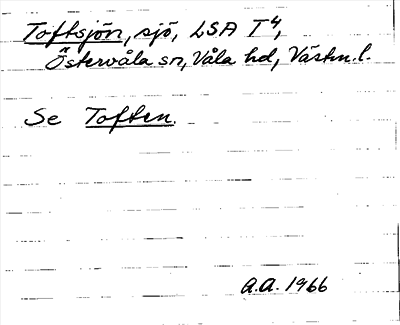 Toftsjön, sjö, LSA T4,
Östervåla sn, Våla hd, Västm.l.
Se Toften.
A.A. 1966